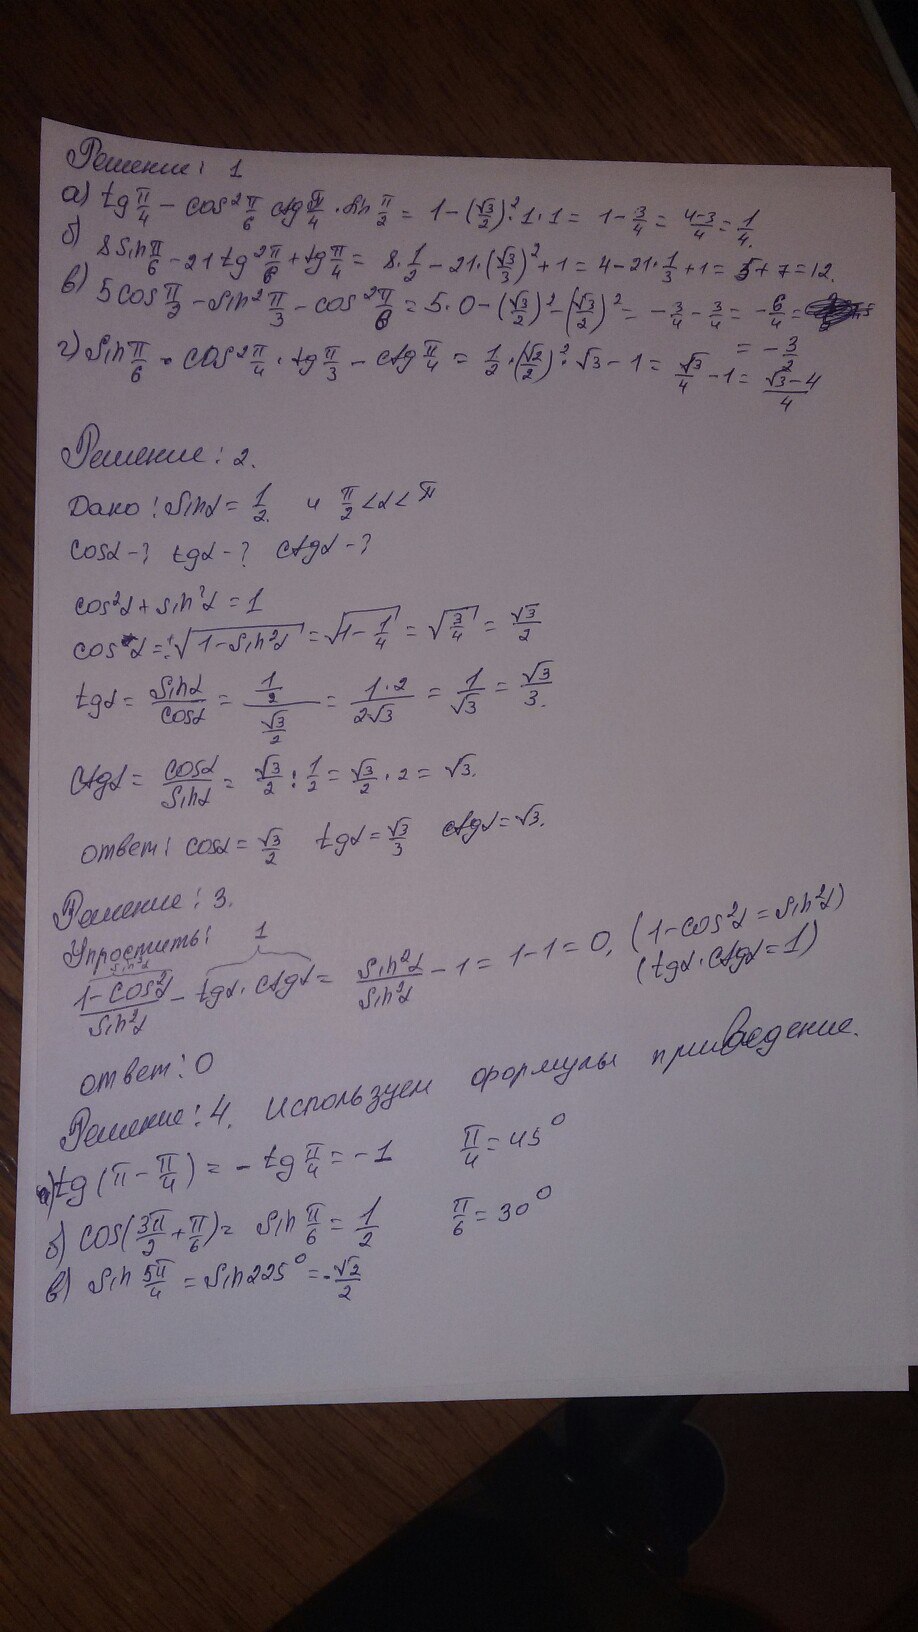 Решение: 1
а) tg π/4 − cos² π/6 ctg π/4 · sin π/2 = 1 − (√3/2)² · 1 · 1 = 1 − 3/4 = (4−3)/4 = 1/4.
б) 8 sin π/6 − 21 tg² π/6 + tg π/4 = 8 · 1/2 − 21 · (√3/3)² + 1 = 4 − 21 · 1/3 + 1 = 5 + 7 = 12.
в) 5 cos π/2 − sin² π/3 − cos² π/6 = 5 · 0 − (√3/2)² − (√3/2)² = −3/4 − 3/4 = −6/4 =
= −3/2
г) sin π/6 · cos² π/4 · tg π/3 − ctg π/4 = 1/2 · (√2/2)² · √3 − 1 = √3/4 − 1 = (√3−4)/4
Решение: 2.
Дано: sinα = 1/2. и π/2 < α < π
cosα − ? tgα − ? ctgα − ?
cos²α + sin²α = 1
cosα = ±√(1 − sin²α) = √(1 − 1/4) = √(3/4) = √3/2
tgα = sinα/cosα = (1/2)/(√3/2) = (1·2)/(2√3) = 1/√3 = √3/3.
ctgα = cosα/sinα = √3/2 : 1/2 = √3/2 · 2 = √3.
ответ: cosα = √3/2 tgα = √3/3 ctgα = √3.
Решение: 3.
Упростить: 1
sin²α
(1−cos²α)/sin²α − tgα · ctgα = sin²α/sin²α − 1 = 1−1 = 0, (1−cos²α = sin²α)
(tgα · ctgα = 1)
ответ: 0
Решение: 4. Используем формулы приведение.
а) tg(π − π/4) = − tg π/4 = −1 π/4 = 45°
б) cos(3π/2 + π/6) = sin π/6 = 1/2 π/6 = 30°
в) sin 5π/4 = sin 225° = −√2/2